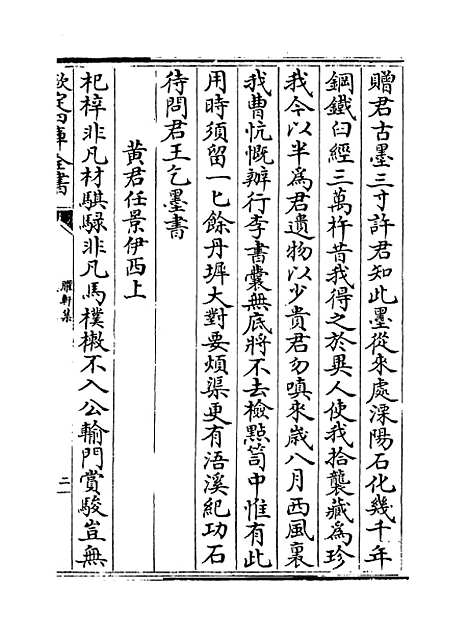 贈君古墨三寸許君知此墨從來處深陽石化幾千年
鋼鐵臼經三萬杵昔我得之於異人使我拾襲藏為珍
我今以半為君遺物以少貴君勿嗔來歲八月西風裏
我曹忼慨辦行李書囊無底將不去檢點笥中惟有此
用時須留一匕餘丹墀大對要煩渠更有浯溪紀功石
待問君王乞墨書
黃君任景伊西上
杞梓非凡材騏騄非凡馬樸樕不入公輸門賞駿豈無
欽定四庫全書
臞軒集
二